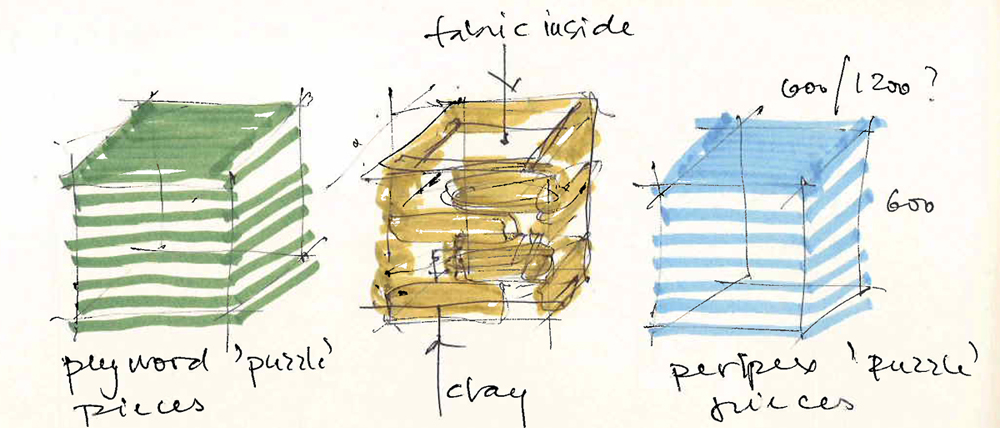 fabric inside
600/1200?
600
plywood 'puzzle'
pieces
clay
perspex 'puzzle'
pieces